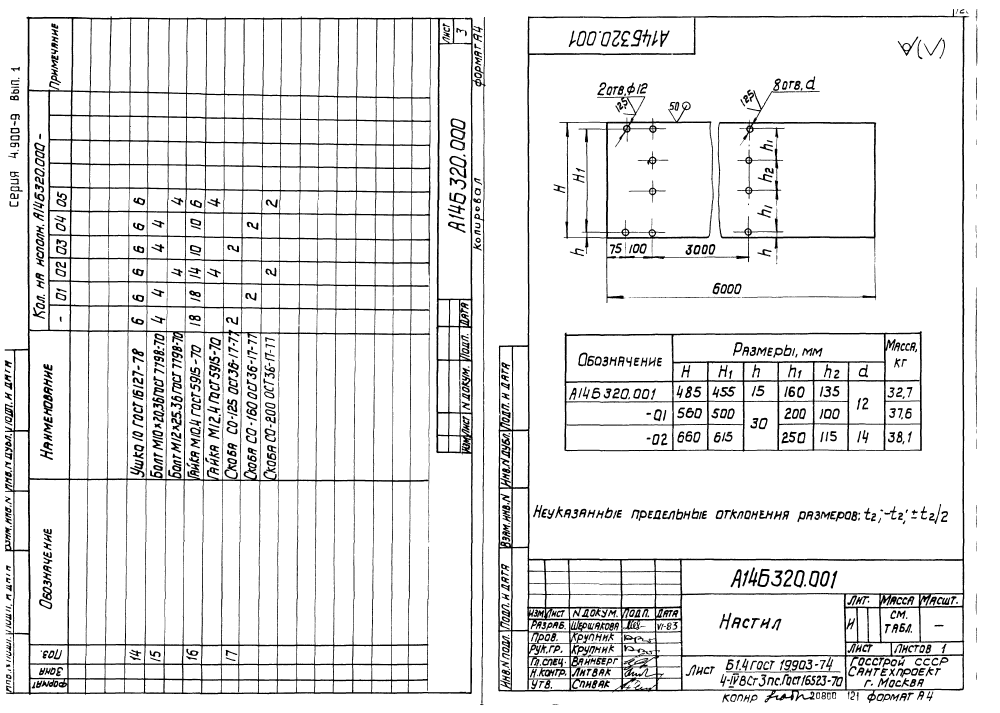 Серия 4.900-9 Вып. 1
Формат
Зона
Поз.
Обозначение
Наименование
Кол. на исполн. А14Б320.000 -
- 01 02 03 04 05
Примечание
14 Ушко 10 ГОСТ 16127-78 6 6 6 6 6 6
15 Болт М10×20.36 ГОСТ 7798-70 4 4 4 4
Болт М12×25.36 ГОСТ 7798-70 4 4
16 Гайка М10.4 ГОСТ 5915-70 18 18 14 10 10 6
Гайка М12.4 ГОСТ 5915-70 4 4
17 Скоба СО-125 ОСТ 36-17-77 2 2
Скоба СО-160 ОСТ 36-17-77 2 2
Скоба СО-200 ОСТ 36-17-77 2 2
Изм Лист N докум. Подп. Дата
А14Б320.000
Лист
3
Копировал
формат А4
Инв. N подл. Подп. и дата Взам. инв. N Инв. N дубл. Подп. и дата
А14Б320.001
(√)
2 отв. ϕ12
12,5
50
8 отв. d
12,5
H
H1
h
h1
h2
h1
h
75 100
3000
6000
Обозначение Размеры, мм Масса, кг
H H1 h h1 h2 d
А14Б320.001 485 455 15 160 135 12 32,7
-01 560 500 30 200 100 37,6
-02 660 615 250 115 14 38,1
Неуказанные предельные отклонения размеров: t2; -t2; ±t2/2
Инв. N подл. Подп. и дата Взам. инв. N Инв. N дубл. Подп. и дата
А14Б320.001
Изм Лист N докум. Подп. Дата
Разраб. Шершакова VI-83
Пров. Крупник
Рук.гр. Крупник
Гл.спец. Вайнберг
Н.контр. Литвак
Утв. Спивак
Настил
Лит. Масса Масшт.
И см. табл. —
Лист Листов 1
Лист Б1.4 ГОСТ 19903-74
4-IV ВСт 3 пс. ГОСТ 16523-70
Госстрой СССР
Сантехпроект
г. Москва
Копир 20800 121 формат А4